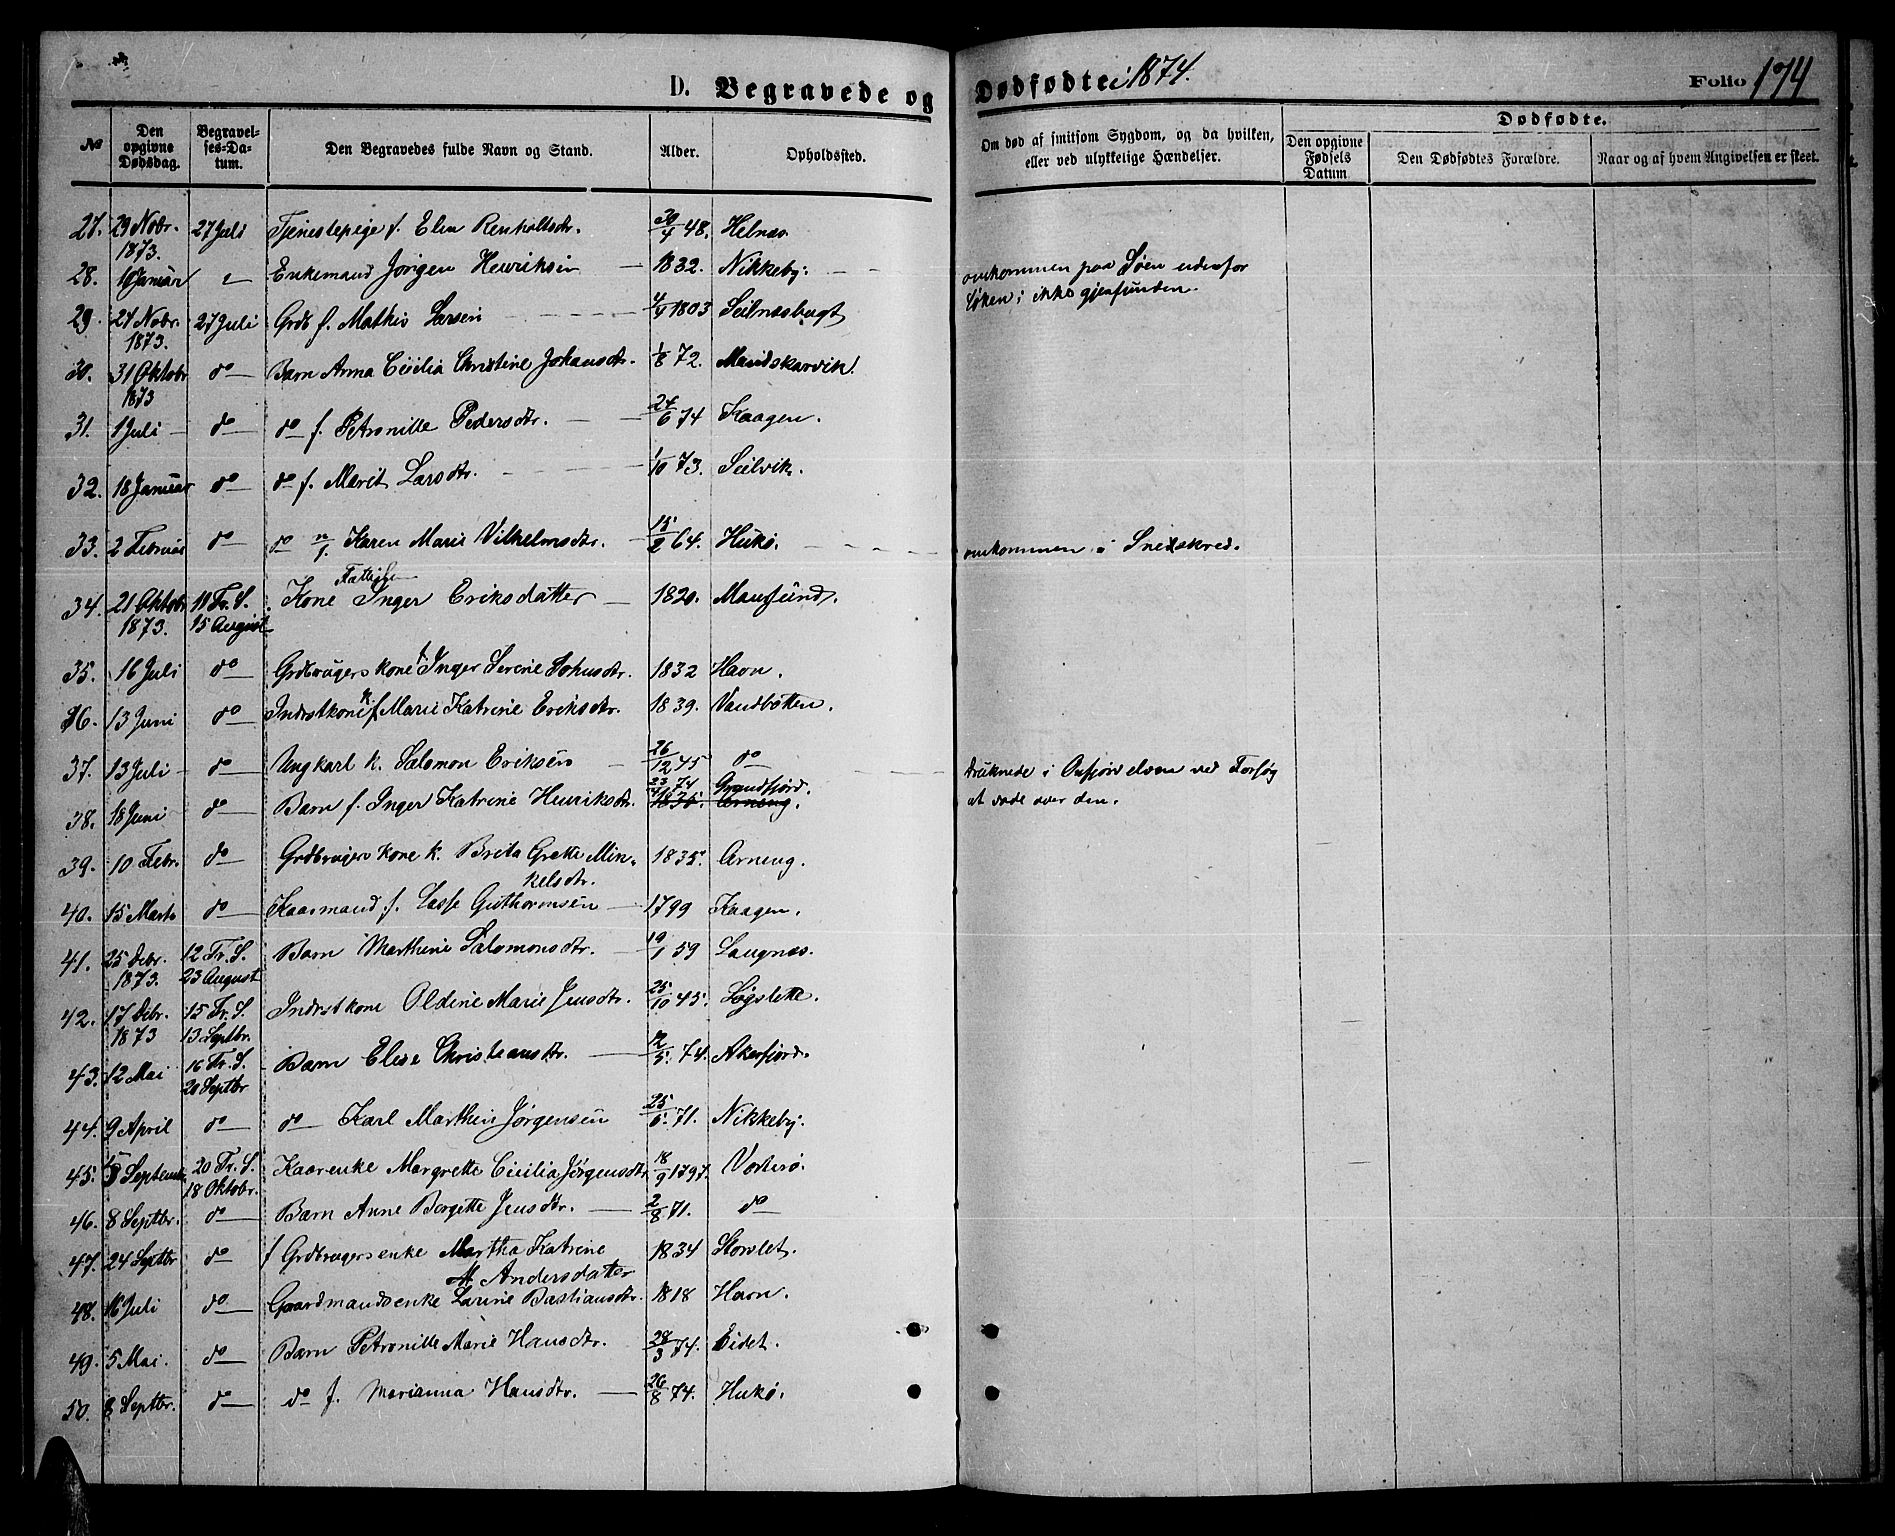 D. Begravede og Dødfødte i 1874. Folio 174
No
Den opgivne Dødsdag.
Begravelses-Datum.
Den Begravedes fulde Navn og Stand.
Alder.
Opholdssted.
Om død af smitsom Sygdom, og da hvilken, eller ved ulykkelige Hændelser.
Dødfødte.
Den opgivne Fødsels Datum
Den Dødfødtes Forældre.
Naar og af hvem Angivelsen er skeet.
27. 29 Novbr. 1873. 27 Juli Tjenestepige f. Elen Renholtsdtr. 30/4 48. Helnæs
28. 10 Januar " Enkemand Jørgen Henriksen 1832. Nikkeby. omkommen paa Søen udenfor
Løken; ikke gjenfunden.
29. 24 Novbr. 1873. 27 Juli Grdb f. Mathis Larsen 4/4 1803 Seilnæsbugt
30. 31 Oktobr 1873 do Barn Anna Cicilia Christine Johansdtr. 1/8 72. Mandskarvik.
31. 1 Juli do do f. Petronille Pedersdtr. 24/6 74 Kaagen.
32. 18 Januar do do f. Marit Larsdtr. 1/10 73. Seilvik.
33. 2 Februar do do n/f. Karen Marie Vilhelmsdtr. 15/2 64. Hukø. omkommen i Snedskred.
34. 21 Oktobr 1873. 11 Tr. S. 15 August Kone Fattiglem Inger Eriksdatter 1820. Maursund.
35. 16 Juli do Grdbrugers kone f Inger Serine Johnsdtr. 1832 Havn.
36. 13 Juni do Indrstkone k f Marie Katrine Eriksdtr. 1839. Vandbotten.
37. 13 Juli do Ungkarl k. Salomon Eriksen 26/12 45 do druknede i Oxfjordelven ved Forsøg
at vade over den.
38. 18 Juni do Barn f. Inger Katrine Henriksdtr. 23/4 74 Grundfjord.
39. 10 Febr. do Grdbrugers kone k. Brita Grette Minkelsdtr. 1835. Arneng.
40. 15 Marts do Kaarmand f. Lasse Guthormsen 1799 Kaagen.
41. 25 Debr. 1873. 12 Tr. S. 23 August Barn Marthine Salomonsdtr. 19/1 59 Laugnæs.
42. 17 Debr. 1873 15 Tr. S. 13 Septbr. Indrstkone Oldine Marie Jensdtr. 25/10 45. Løgslette.
43. 12 Mai 16 Tr. S. 20 Septbr Barn Elise Christiansdtr. 12/5. 74. Akerfjord.
44. 9 April do do Karl Marthin Jørgensen 25/5. 71. Nikkeby.
45. Septembr 20 Tr. S. 18 Oktobr. Kaarenke Margrette Cicilia Jørgensdtr 18/9 1797. Vorterø.
46. 8 Septbr. do Barn Anne Borgette Jensdtr. 2/8 71. do
47. 24 Septbr do f Grdbrugersenke Martha Katrine M. Andersdatter 1834 Storslet.
48. 16 Juli do Gaardmandsenke Larine Bastiansdtr. 1818 Havn.
49. 5 Mai. do Barn Petronille Marie Hansdtr. 28/3 74. Eidet.
50. 8 Septbr. do do f. Marianna Hansdtr. 26/8 74. Hukø.